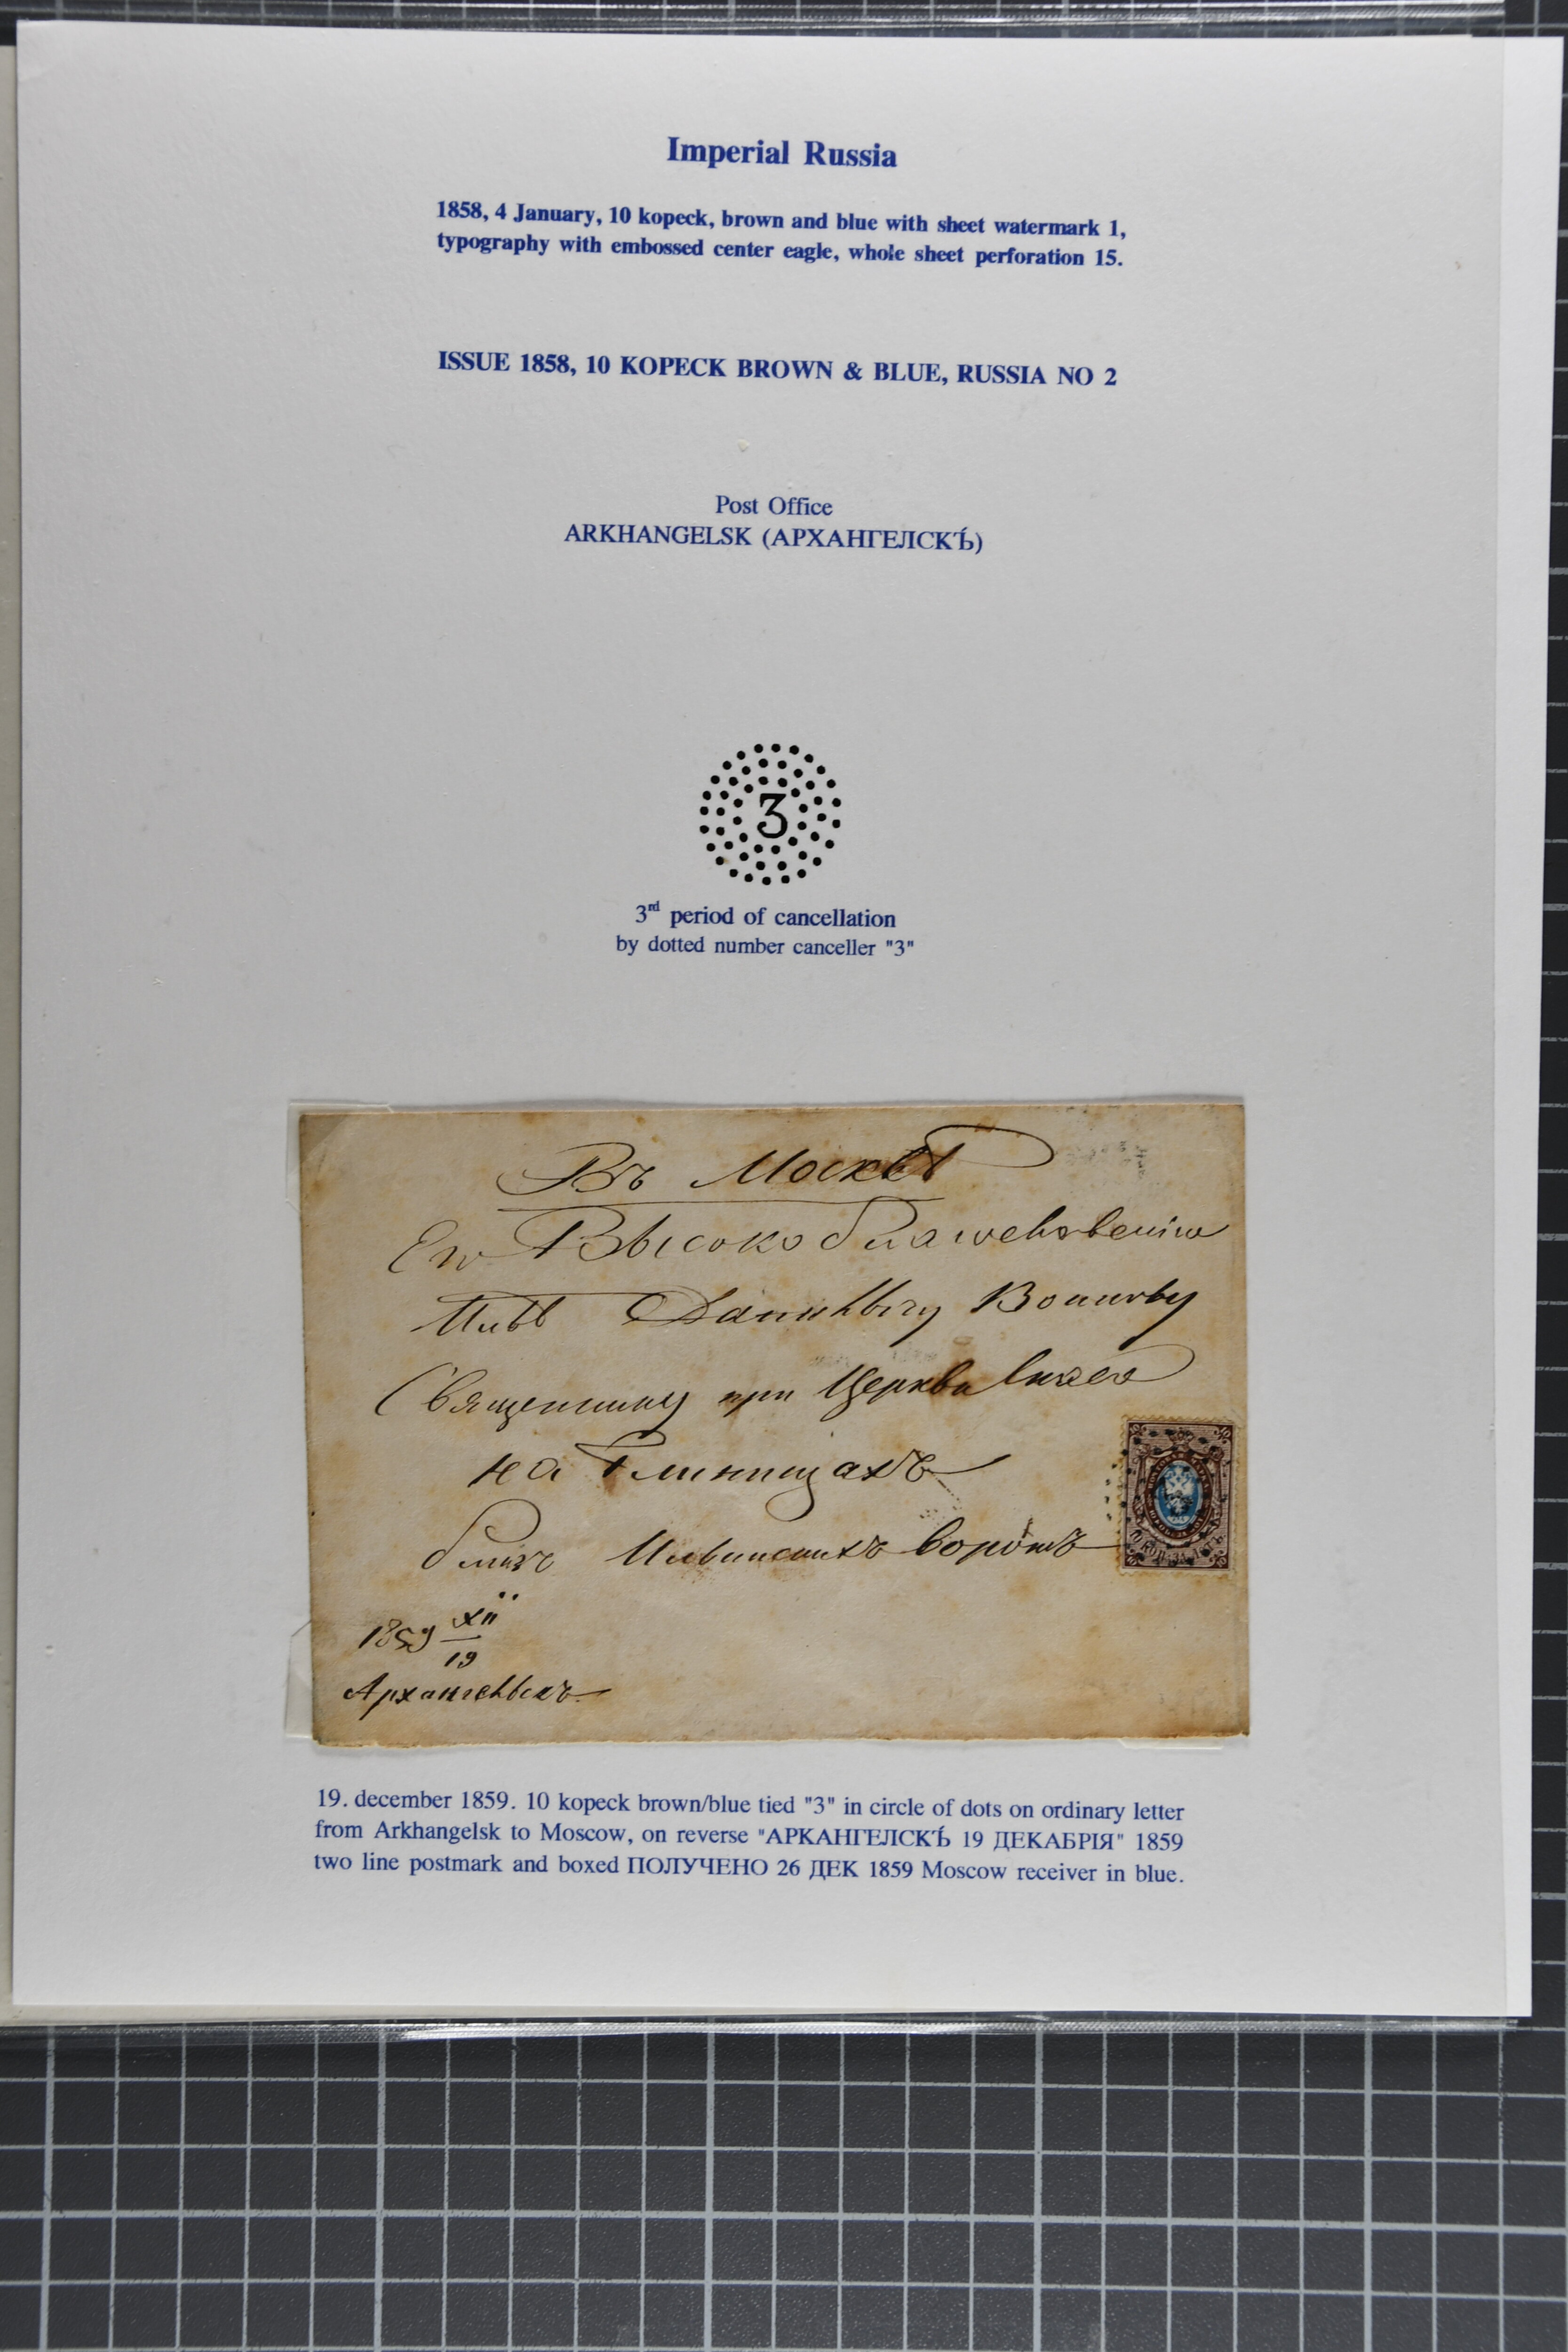 Imperial Russia
1858, 4 January, 10 kopeck, brown and blue with sheet watermark 1,
typography with embossed center eagle, whole sheet perforation 15.
ISSUE 1858, 10 KOPECK BROWN & BLUE, RUSSIA NO 2
Post Office
ARKHANGELSK (АРХАНГЕЛСКЪ́)
3
3rd period of cancellation
by dotted number canceller "3"
Въ Москвѣ
Его Высокоблагословенію
Ильѣ Данилычу
Священнику при Церкви
на Глинищахъ
близъ Ильинскихъ воротъ
1859 XII
19
Архангельскъ
19. december 1859. 10 kopeck brown/blue tied "3" in circle of dots on ordinary letter
from Arkhangelsk to Moscow, on reverse "АРКАНГЕЛСКЪ́ 19 ДЕКАБРІЯ" 1859
two line postmark and boxed ПОЛУЧЕНО 26 ДЕК 1859 Moscow receiver in blue.